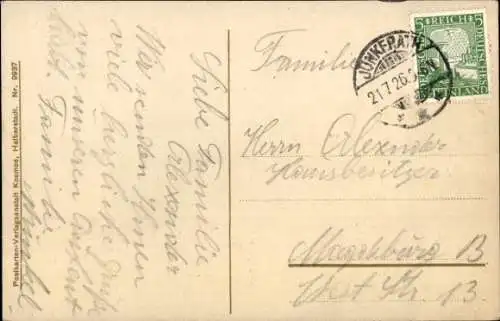 Postkarten-Verlagsanstalt Kosmos, Halberstadt. Nr. 9937
Liebe Familie
Alexander
Wir senden Ihnen
viele herzliche Grüße
von unserem
Familie
5 DEUTSCHES REICH 5
JÜNKERATH
21.7.26.5-6N
Familie
Herrn Alexander
Hausbesitzer
Magdeburg B
West Str. 13